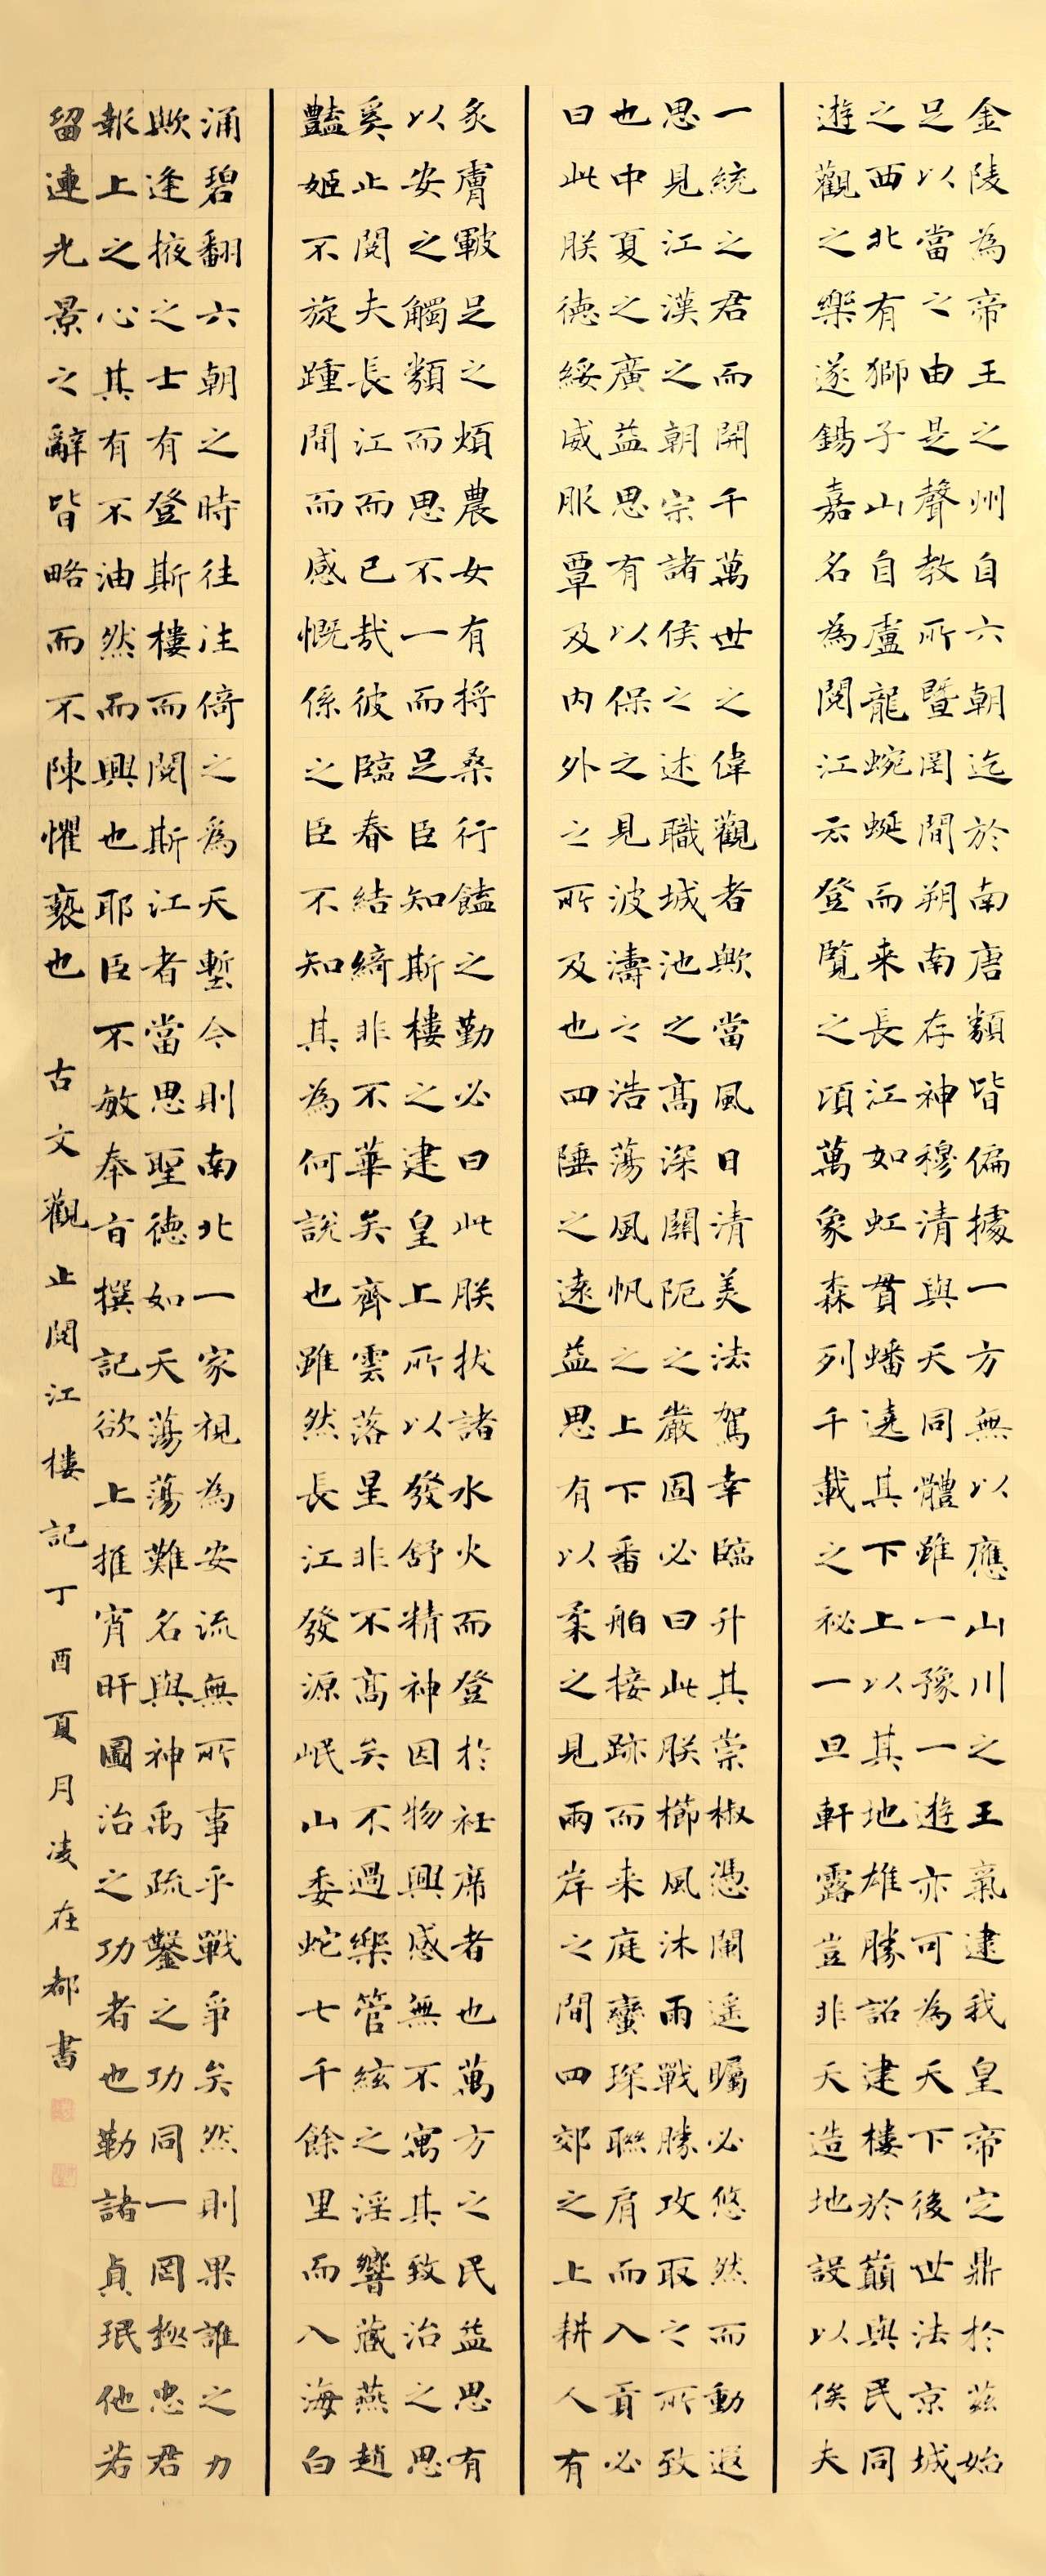 金陵為帝王之州自六朝迄於南唐類皆偏據一方無以應山川之王氣逮我皇帝定鼎於茲始
足以當之由是聲教所暨罔間朔南存神穆清與天同體雖一豫一遊亦可為天下後世法京城
之西北有獅子山自盧龍蜿蜒而来長江如虹貫蟠遶其下上以其地雄勝詔建樓於巔與民同
遊觀之樂遂錫嘉名為閱江云登覽之頃萬象森列千載之祕一旦軒露豈非天造地設以俟夫
一統之君而開千萬世之偉觀者歟當風日清美法駕幸臨升其崇椒憑闌遥矚必悠然而動遐
思見江漢之朝宗諸侯之述職城池之高深關阨之嚴固必曰此朕櫛風沐雨戰勝攻取之所致
也中夏之廣益思有以保之見波濤之浩蕩風帆之上下番舶接跡而来庭蠻琛聯肩而入貢必
曰此朕德綏威服覃及內外之所及也四陲之遠益思有以柔之見兩岸之間四郊之上耕人有
炙膚皸足之煩農女有捋桑行饁之勤必曰此朕拔諸水火而登於衽席者也萬方之民益思有
以安之觸類而思不一而足臣知斯樓之建皇上所以發舒精神因物興感無不寓其致治之思
奚止閱夫長江而已哉彼臨春結綺非不華矣齊雲落星非不高矣不過樂管絃之淫響藏燕趙
豔姬不旋踵間而感慨係之臣不知其為何說也雖然長江發源岷山委蛇七千餘里而入海白
涌碧翻六朝之時往往倚之為天塹今則南北一家視為安流無所事乎戰爭矣然則果誰之力
歟逢掖之士有登斯樓而閱斯江者當思聖德如天蕩蕩難名與神禹疏鑿之功同一罔極忠君
報上之心其有不油然而興也耶臣不敏奉旨撰記欲上推宵旰圖治之功者也勒諸貞珉他若
留連光景之辭皆略而不陳懼褻也 古文觀止閱江樓記丁酉夏月凌在都書